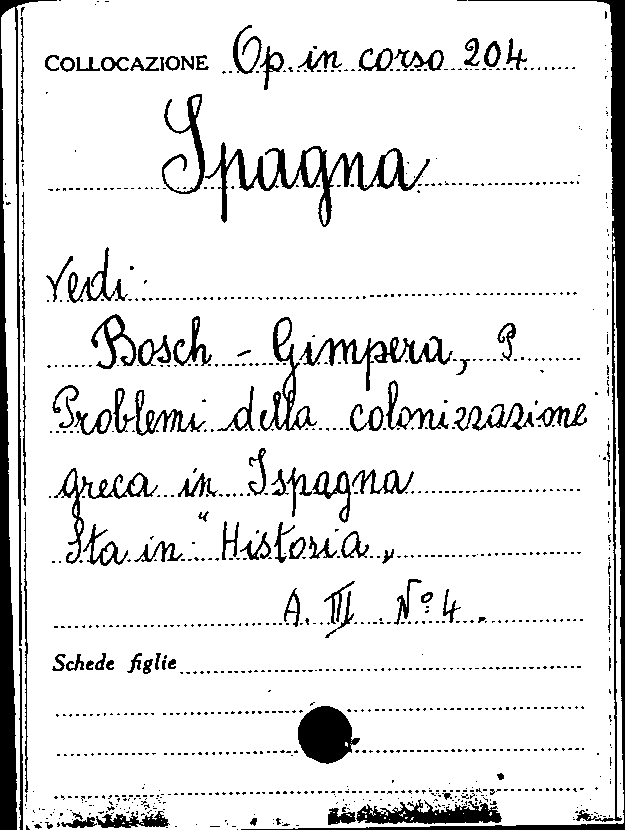 COLLOCAZIONE Op. in corso 204
Spagna
vedi:
Bosch - Gimpera, P.
Problemi della colonizzazione
greca in Ispagna
Sta in: "Historia„
A. III. Nº 4.
Schede figlie